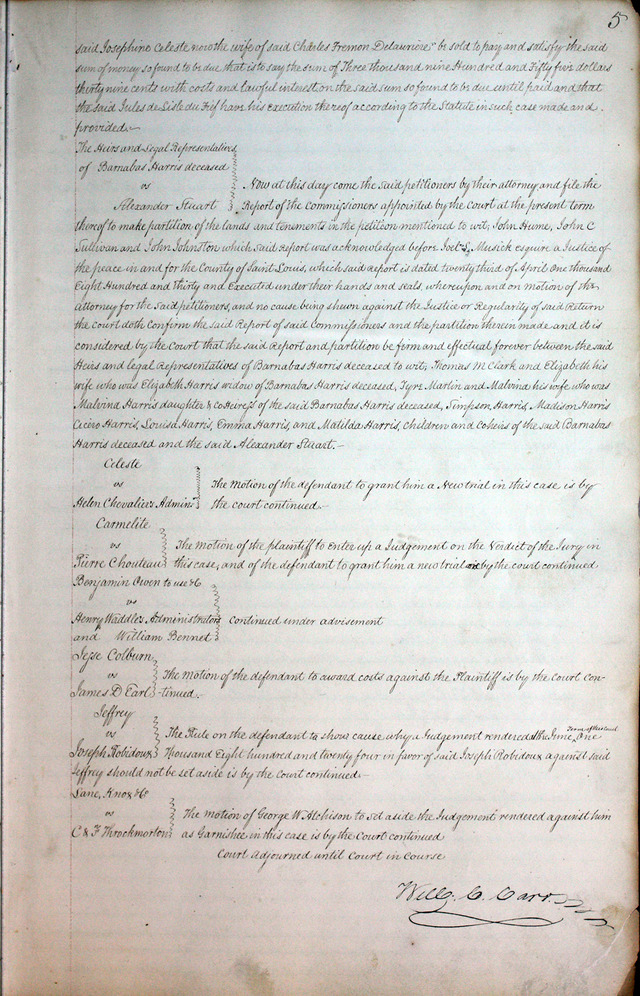 5
said Josephine Celeste now the wife of said Charles Fremon Delauriere be sold to pay and satisfy the said
sum of money so found to be due that is to say the sum of Three thousand nine Hundred and Fifty five dollars
thirty nine cents with costs and lawful interest on the said sum so found to be due until paid and that
the said Jules de Lisle du Fief have his Execution thereof according to the Statute in such case made and
provided
The Heirs and Legal Representatives
of Barnabas Harris deceased
vs
Alexander Stuart
Now at this day come the said petitioners by their attorney and file the
Report of the Commissioners appointed by the Court at the present term
thereof to make partition of the lands and tenements in the petition mentioned to wit, John Hume, John C
Sullivan and John Johnston which said Report was acknowledged before Joel L. Musick esquire a Justice of
the peace in and for the County of Saint Louis, which said report is dated twenty third of April One thousand
Eight Hundred and thirty and Executed under their hands and seals, whereupon and on motion of the
attorney for the Said petitioners, and no cause being shewn against the Justice or Regularity of said Return
the court doth confirm the said Report of said Commissioners and the partition therein made and it is
considered by the Court that the said Report and partition be firm and effectual forever between the said
Heirs and legal Representatives of Barnabas Harris deceased to wit; Thomas M Clark and Elizabeth his
wife who was Elizabeth Harris widow of Barnabas Harris deceased, Tyre Martin and Malvina his wife who was
Malvina Harris daughter & coHeiress of the said Barnabas Harris deceased, Simpson Harris, Madison Harris
Cicero Harris, Louisa Harris, Emma Harris, and Matilda Harris, children and coheirs of the said Barnabas
Harris deceased and the said Alexander Stuart.—
Celeste
vs
Helen Chevaliers Adminr
The motion of the defendant to grant him a New trial in this case is by
the court continued.—
Carmelite
vs
Pierre Chouteau
The motion of the plaintiff to Enter up a Judgement on the Verdict of the Jury in
this case, and of the defendant to grant him a new trial is by the court continued
Benjamin Owen to use &c
vs
Henry Waddles Administrators
and William Bennet
continued under advisement
Jesse Colburn
vs
James D Earl
The motion of the defendant to award costs against the Plaintiff is by the Court con-
tinued.—
Jeffrey
vs
Joseph Robidoux
The Rule on the defendant to show cause why a Judgement rendered the June One
thousand Eight hundred and twenty four in favor of said Joseph Robidoux against said
Jeffrey should not be set aside is by the Court continued—
Lane, Knox &c
vs
C & F Throckmorton
The motion of George W Atchison to set aside the Judgement rendered against him
as Garnishee in this case is by the Court continued
Court Adjourned until Court in Course
Will. C. Carr